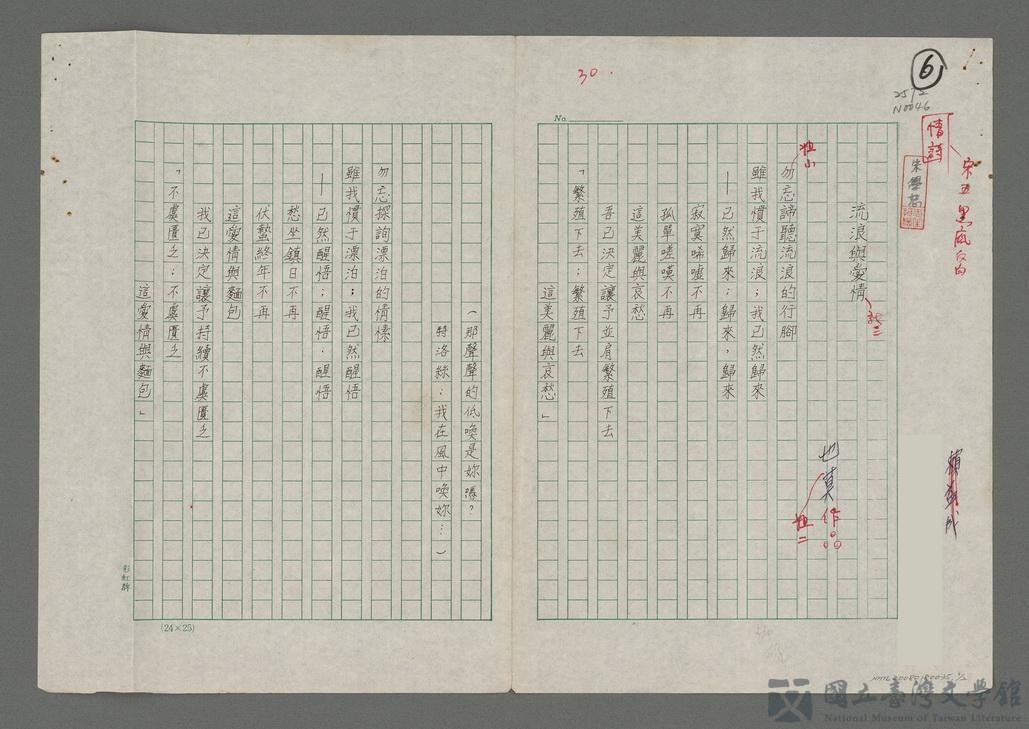 6
30.
N0046
No.
情詩
宋五 黑底反白
朱學恕
流浪與愛情
也莫 作品
粗二
粗小
勿忘諦聽流浪的行腳
雖我慣于流浪；我已然歸來
—已然歸來；歸來，歸來
寂寞唏噓不再
孤單嗟嘆不再
這美麗與哀愁
吾已決定讓予並肩繁殖下去
「繁殖下去；繁殖下去
這美麗與哀愁」
（那聲聲的低喚是妳嗎？
特洛絲：我在風中喚妳…）
勿忘探詢漂泊的情愫
雖我慣于漂泊；我已然醒悟
—已然醒悟；醒悟，醒悟
愁坐鎮日不再
伏蟄終年不再
這愛情與麵包
我已決定讓予持續不虞匱乏
「不虞匱乏；不虞匱乏
這愛情與麵包」
彩虹牌
(24×25)
國立臺灣文學館
National Museum of Taiwan Literature